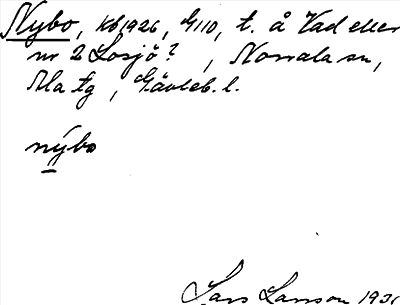 Nybo, Kb 1926, G110, t. å Vad eller
nr 2 Losjö?, Norrala sn,
Ala tg, Gävleb. l.
nýbo
Lars Larsson 193